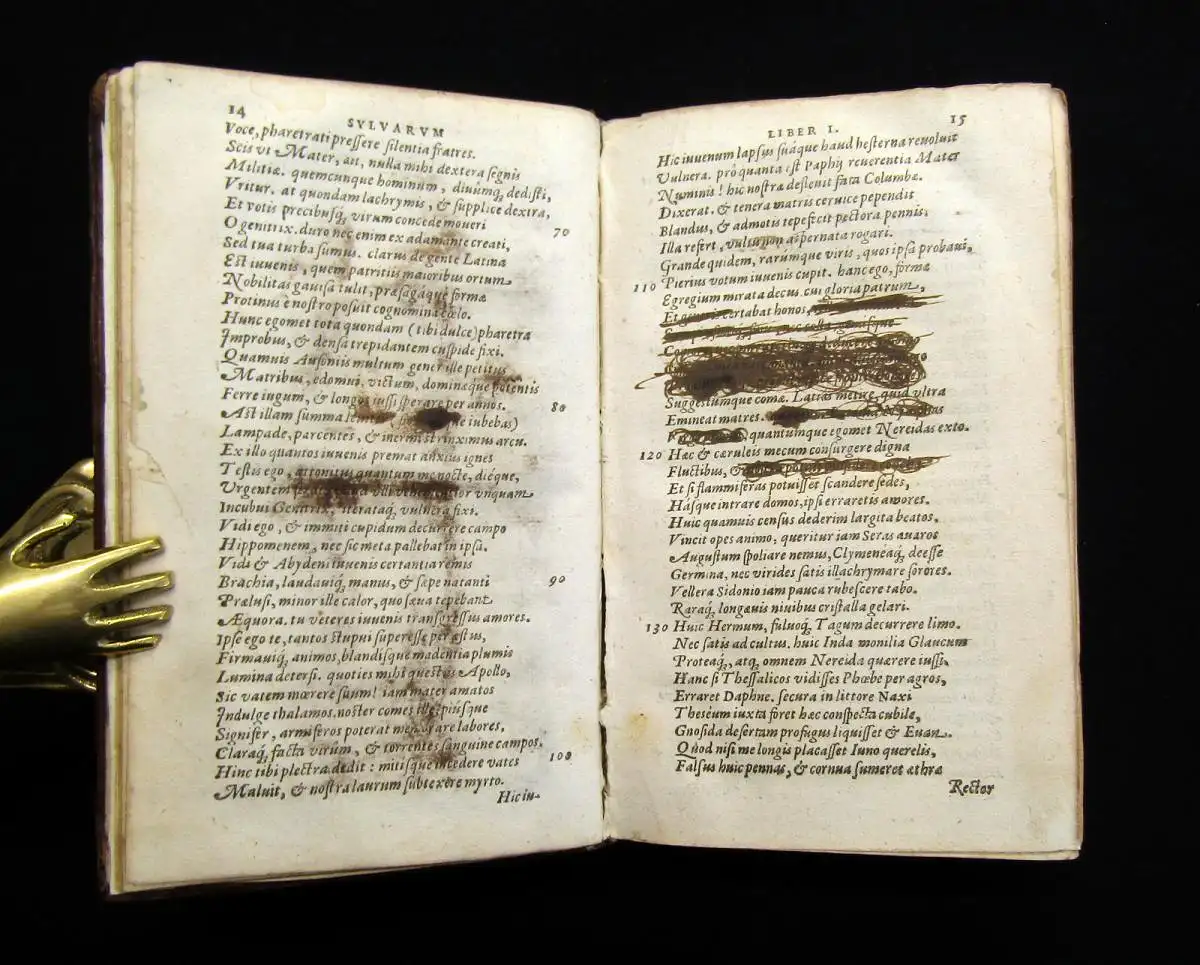 14
SYLVARVM
Voce, pharetrati pressere silentia fratres.
Scis vt Mater, ait, nulla mihi dextera segnis
Militiæ. quemcunque hominum, diuûmq́; dedisti,
Vritur. at quondam lachrymis, & supplice dextra,
Et votis precibusq́; virum concede moueri
O genitrix. duro nec enim ex adamante creati, 70
Sed tua turba sumus. clarus de gente Latina
Est iuuenis, quem patritiis maioribus ortum
Nobilitas gauisa tulit, præsagáque formæ
Protinus è nostro posuit cognomina cælo.
Hunc egomet tota quondam (tibi dulce) pharetra
Improbus, & densa trepidantem cuspide fixi.
Quamuis Ausoniis multum gener ille petitus
Matribus, edomui. victum, dominæque potentis
Ferre iugum, & longos iussi sperare per annos.
Ast illam summa iubebas) 80
Lampade, parcentes, & inermi strinximus arcu.
Ex illo quantos iuuenis premat anxius ignes
Testis ego, attonitus quantum me nocte, diéque,
Urgentem vnquam
Incubui Genitrix, iterataq́; vulnera fixi.
Vidi ego, & immiti cupidum decurrere campo
Hippomenem, nec sic meta pallebat in ipsa.
Vidi & Abydeni iuuenis certantia remis
Brachia, laudauiq́; manus, & sæpe natanti
Prælusi, minor ille calor, quo sæua tepebant 90
Æquora. tu veteres iuuenis transgressus amores.
Ipse ego te, tantos stupui superesse per æstus,
Firmauiq́; animos, blandisque madentia plumis
Lumina detersi. quoties mihi questus Apollo,
Sic vatem mœrere suum! iam mater amatos
Indulge thalamos. noster comes ille, piúsque
Signifer, armiferos poterat memorare labores,
Claraq́; facta virûm, & torrentes sanguine campos.
Hinc tibi plectra dedit: mitisque incedere vates
Maluit, & nostra laurum subtexere myrto. 100
Hic iu-
15
LIBER I.
Hic iuuenum lapsus suáque haud hesterna reuoluit
Vulnera. prô quanta est Paphij reuerentia Mater
Numinis! hic nostræ defleuit fata Columbæ.
Dixerat. & tenera matris ceruice pependit
Blandus, & admotis tepefecit pectora pennis,
Illa refert, vultu non aspernata rogari.
Grande quidem, rarúmque viris, quos ipsa probaui,
Pierius votum iuuenis cupit. hanc ego, formæ
110 Egregium mirata decus, cui gloria patrum,
Et generis certabat honos,
Suggestumque comæ. Latias metire, quid vltra
Emineat matres.
quantumque egomet Nereidas exto.
120 Hæc & cæruleis mecum consurgere digna
Fluctibus, &
Et si flammiferas potuisset scandere sedes,
Hásque intrare domos, ipsi erraretis amores.
Huic quamuis census dederim largita beatos,
Vincit opes animo, queritur iam Seras auaros
Augustum spoliare nemus, Clymeneaq́; deesse
Germina, nec virides satis illachrymare sorores.
Vellera Sidonio iam pauca rubescere tabo.
Raraq́; longæuis niuibus cristalla gelari.
130 Huic Hermum, fuluoq́; Tagum decurrere limo.
Nec satis ad cultus. huic Inda monilia Glaucum
Proteaq́;, atq́; omnem Nereida quærere iussi.
Hanc si Thessalicos vidisses Phœbe per agros,
Erraret Daphne. secura in littore Naxi
Theséum iuxta foret hæc conspecta cubile,
Gnosida desertam profugus liquisset & Euan.
Quòd nisi me longis placasset Iuno querelis,
Falsus huic pennas, & cornua sumeret æthræ
Rector